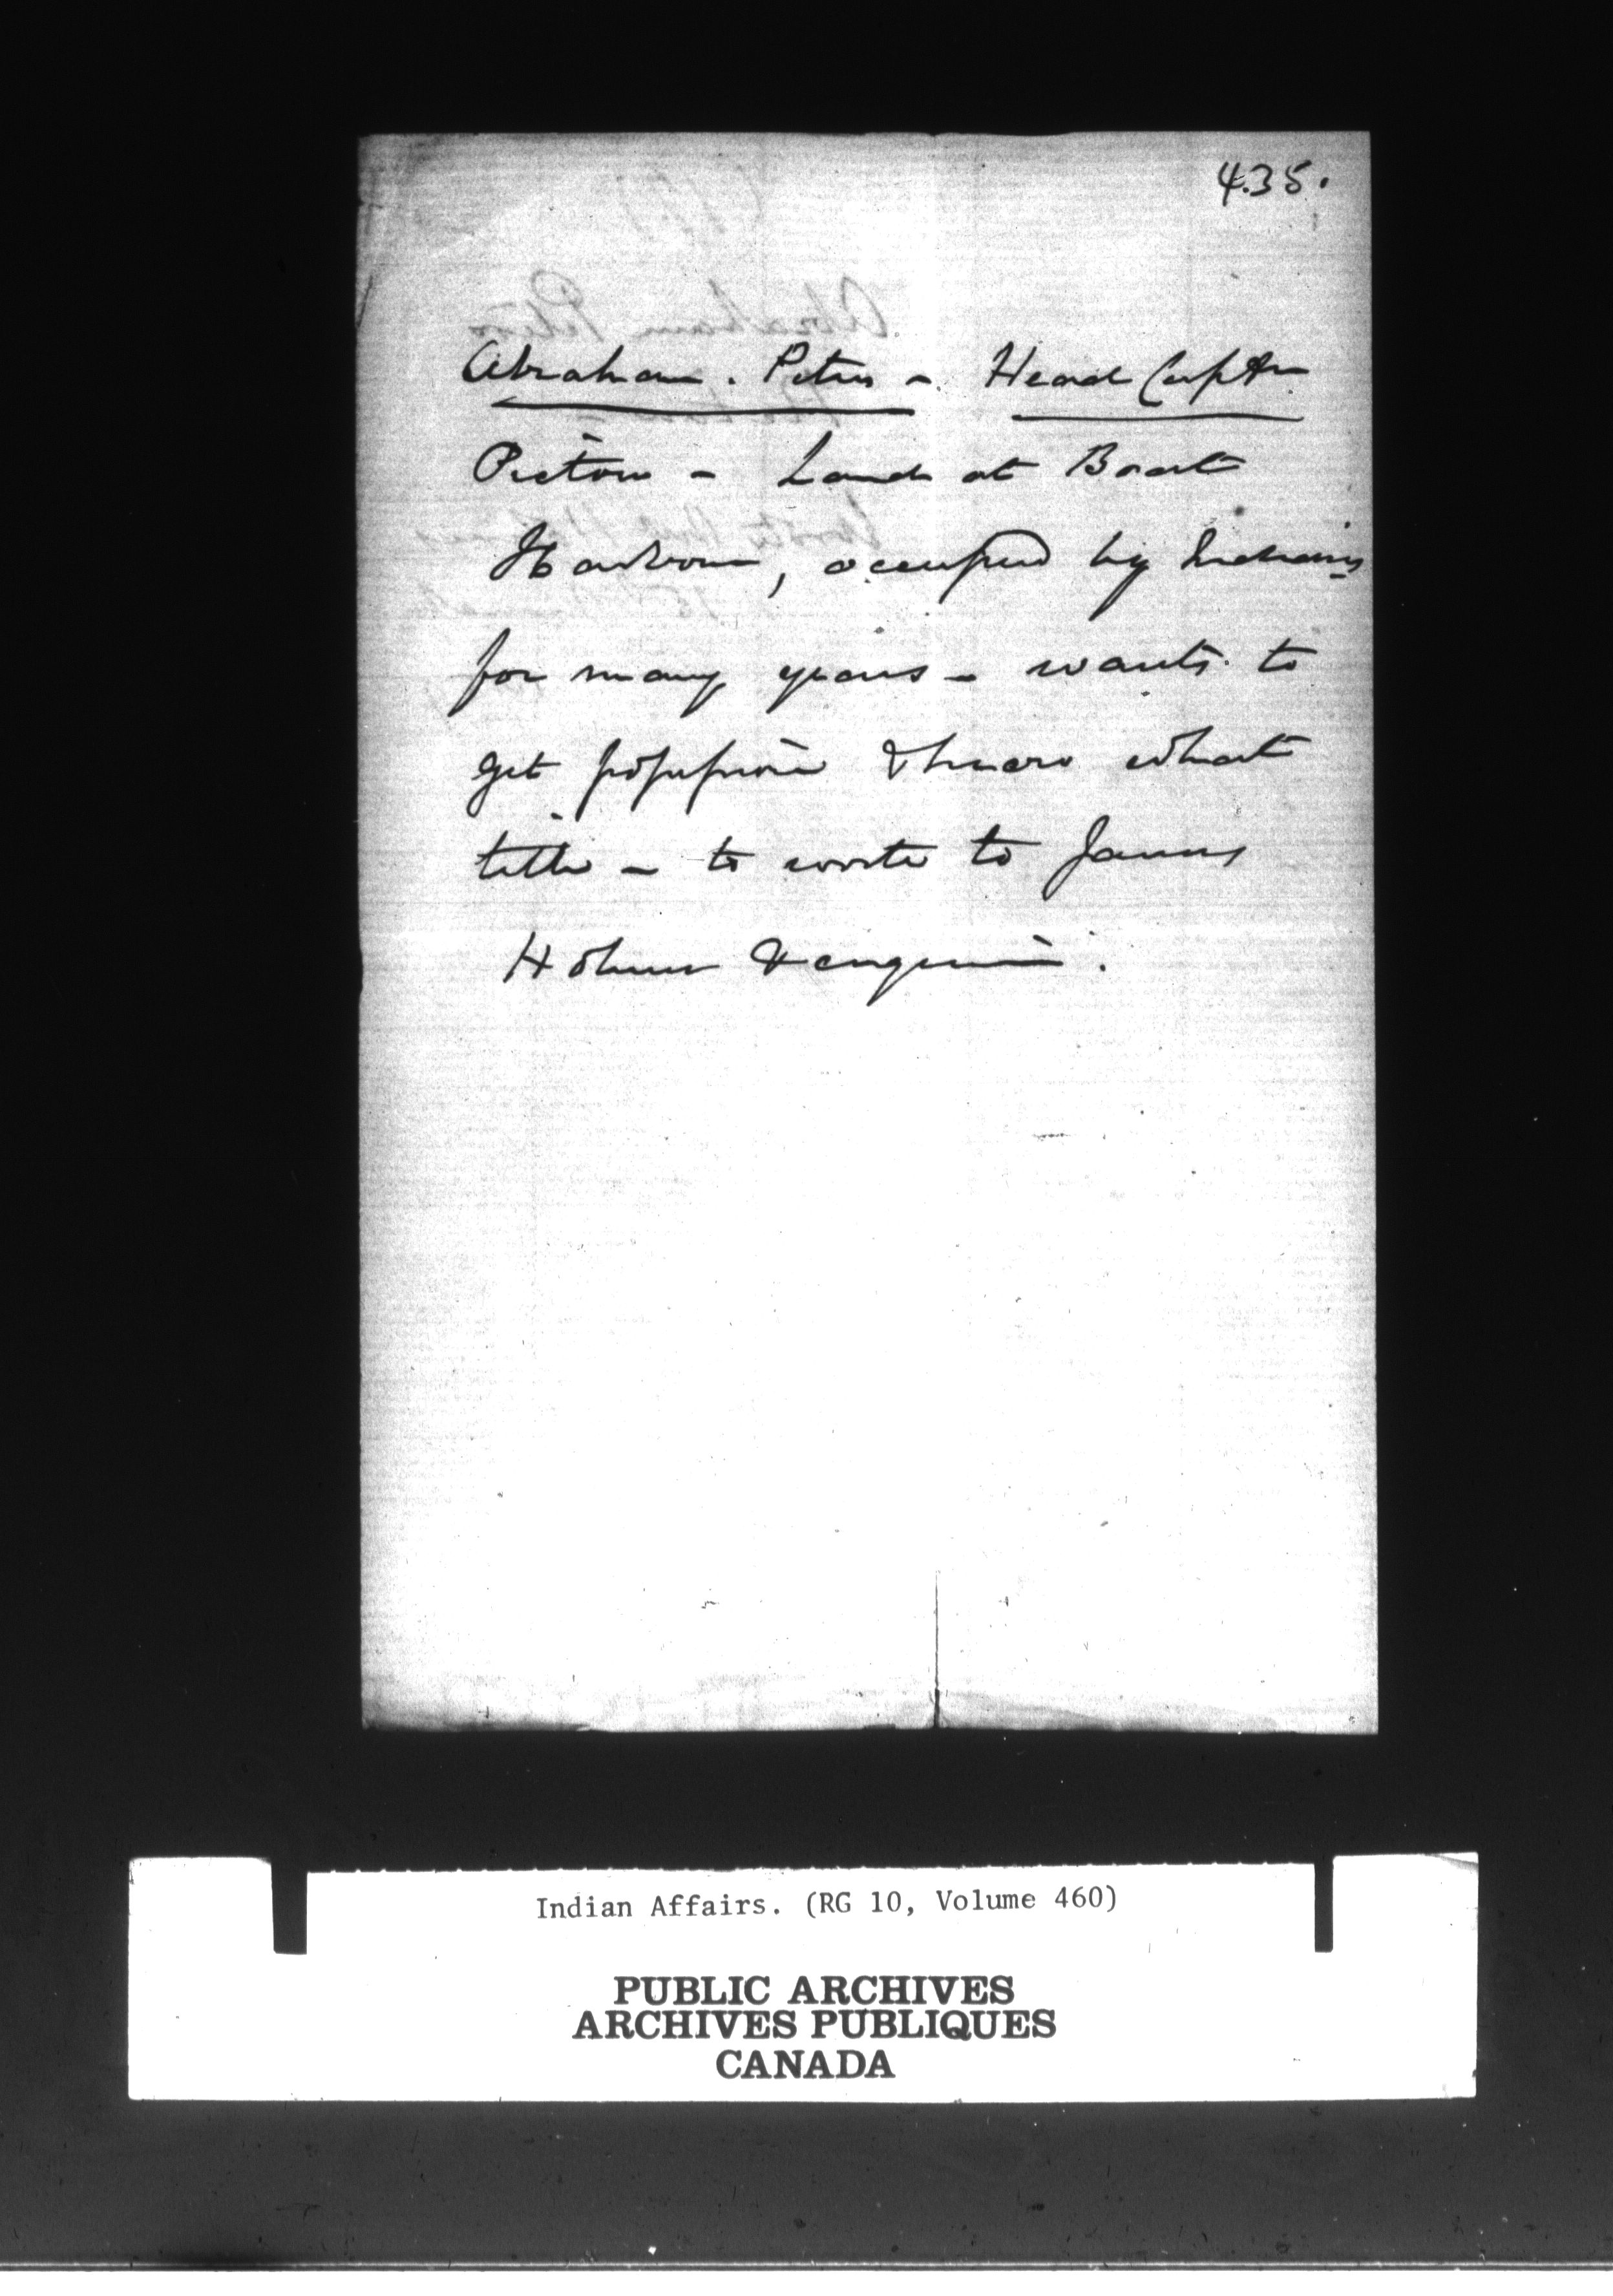 435.
Abraham. Peters - Head Captn
Pictou - Land at Boat
Harbour, occupied by Indians
for many years - wants to
get possession & know what
title - to write to James
Holmes & enquire.
Indian Affairs. (RG 10, Volume 460)
PUBLIC ARCHIVES
ARCHIVES PUBLIQUES
CANADA